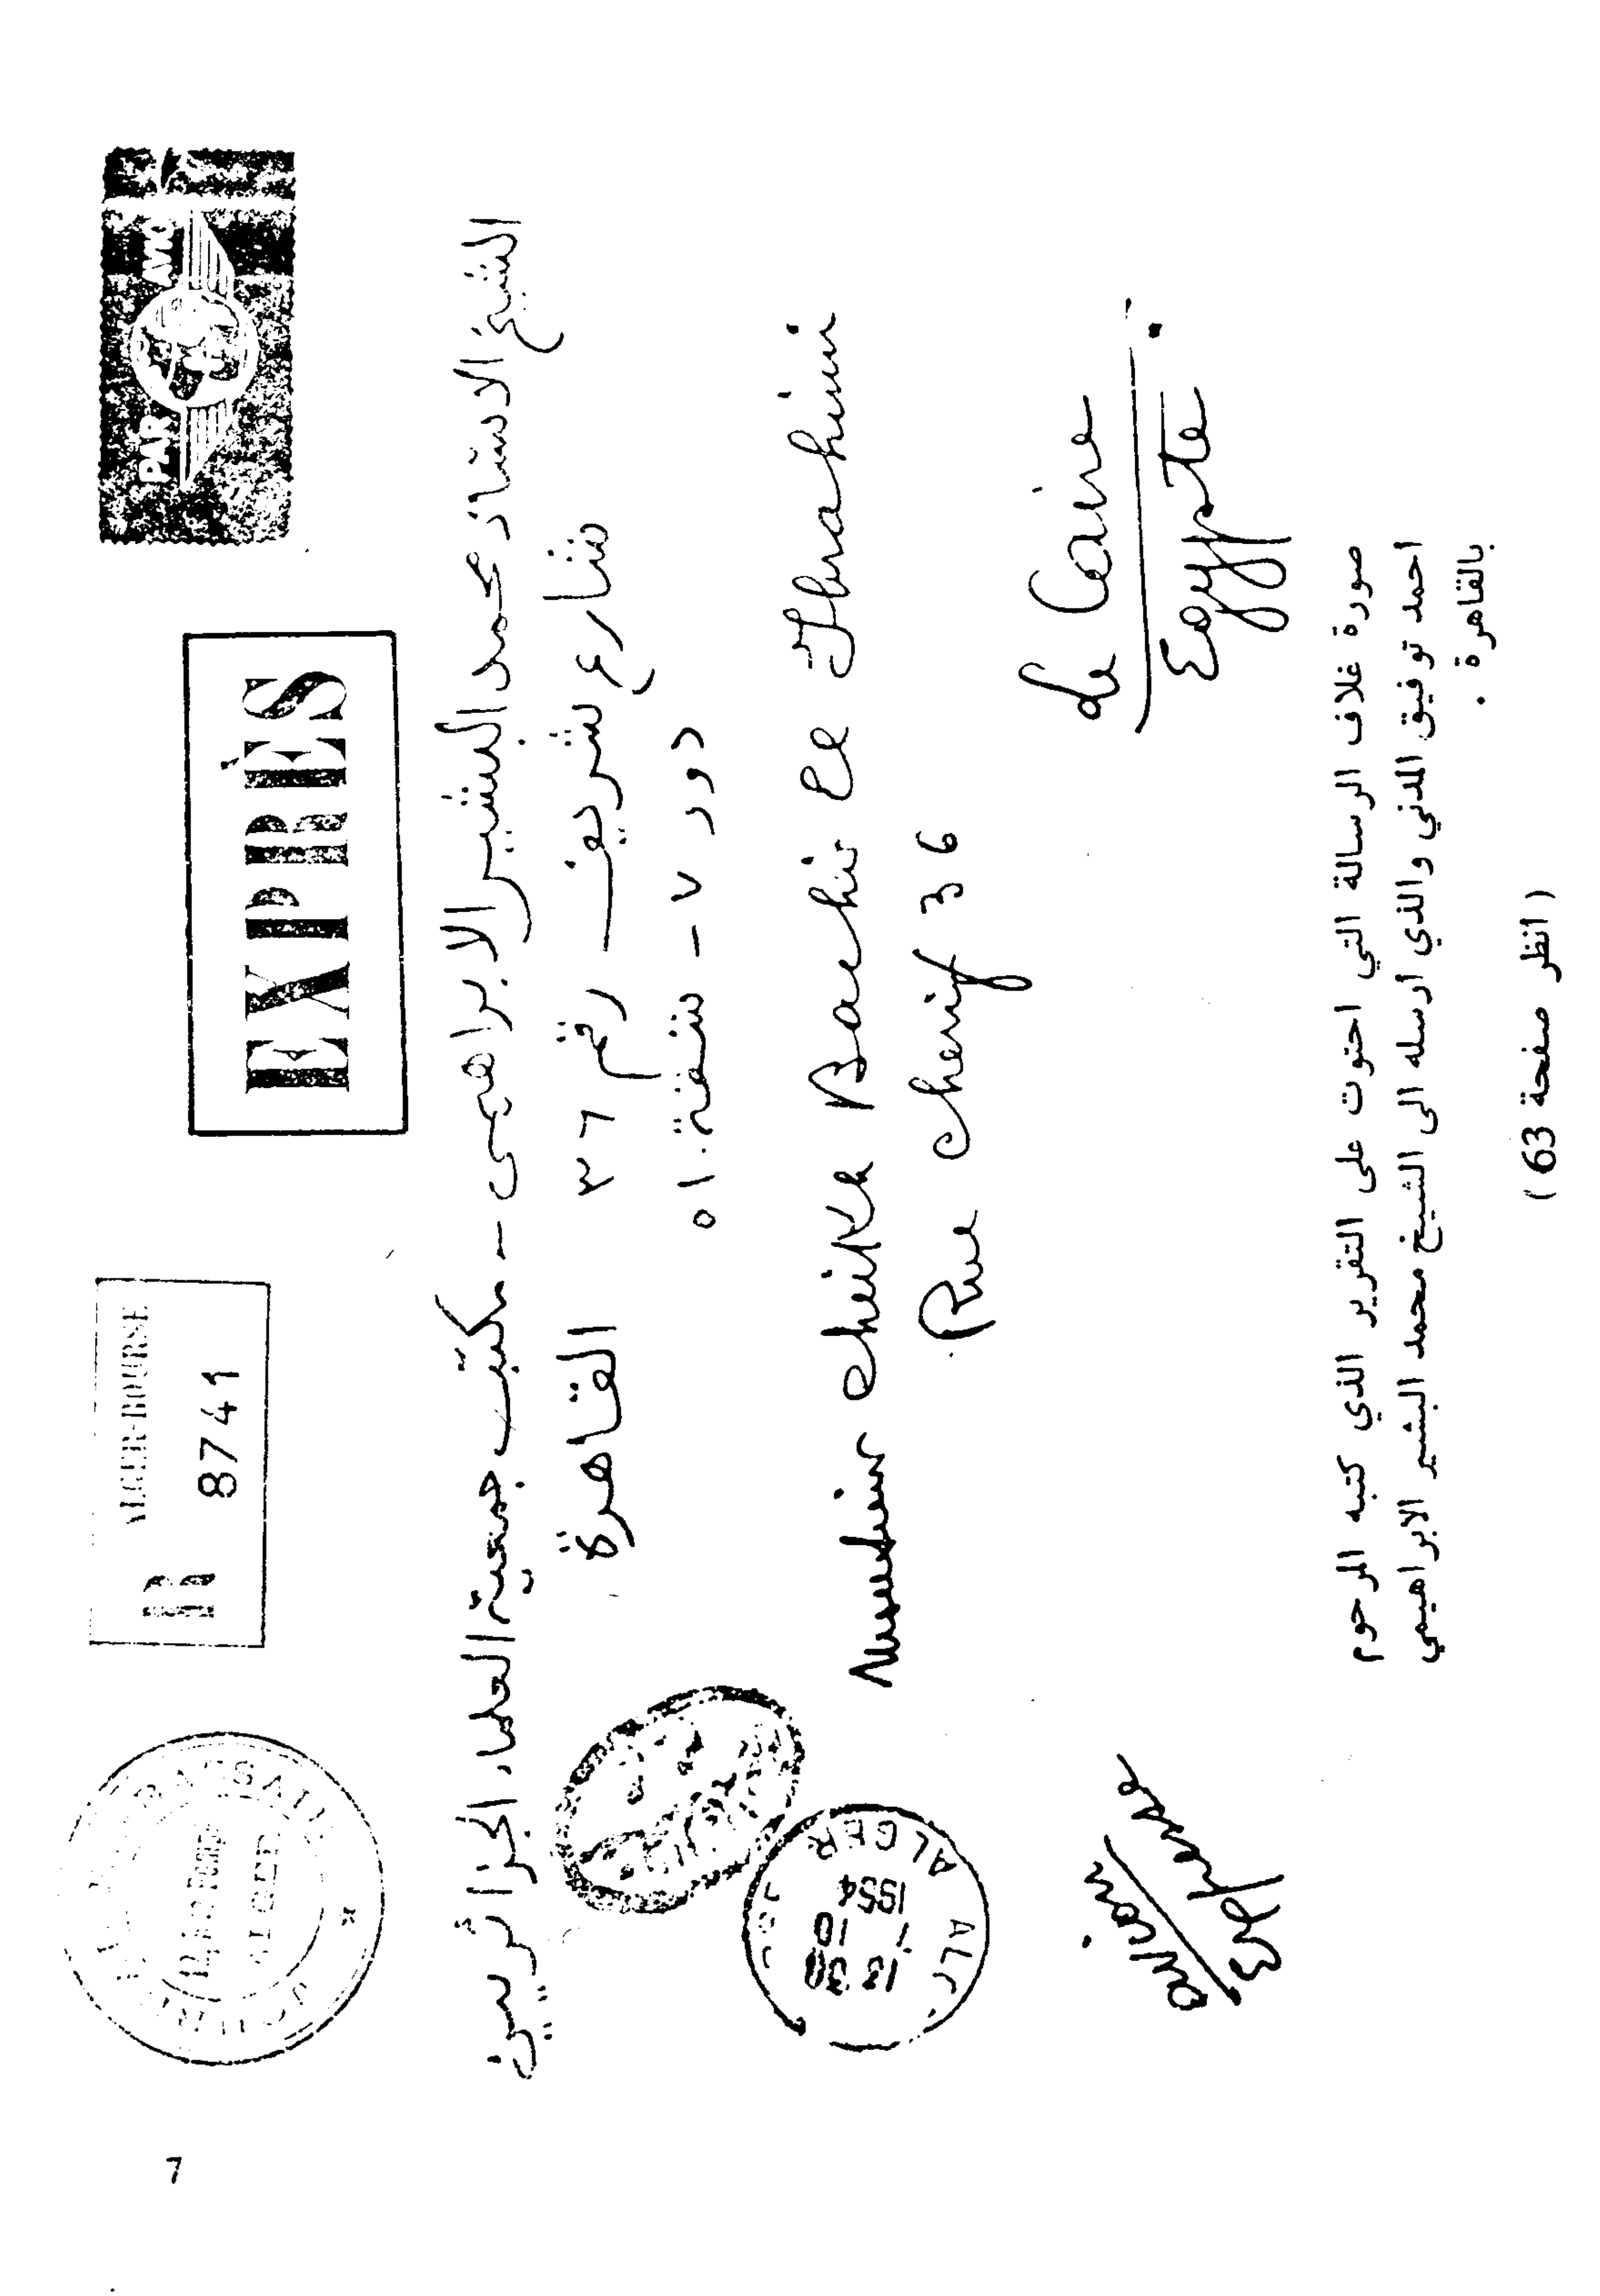 PAR AVION
EXPRÈS
R ALGER-BOURSE
8741
الشيخ الاستاذ محمد البشير الابراهيمى - مكتب جمعية العلماء الجزائريين
شارع شريف رقم ٣٦ القاهرة
دور ٧ - شقة ٥١٠
Cheikh Bachir El Ibrahimi
Rue Cherif 36
Le Caire
Egypte
ALGER
13 30
7 10
1954
avion
Expresse
صورة غلاف الرسالة التي احتوت على التقرير الذي كتبه المرحوم
احمد توفيق المدني والذي أرسله الى الشيخ محمد البشير الابراهيمي
بالقاهرة .
( انظر صفحة 63 )
7